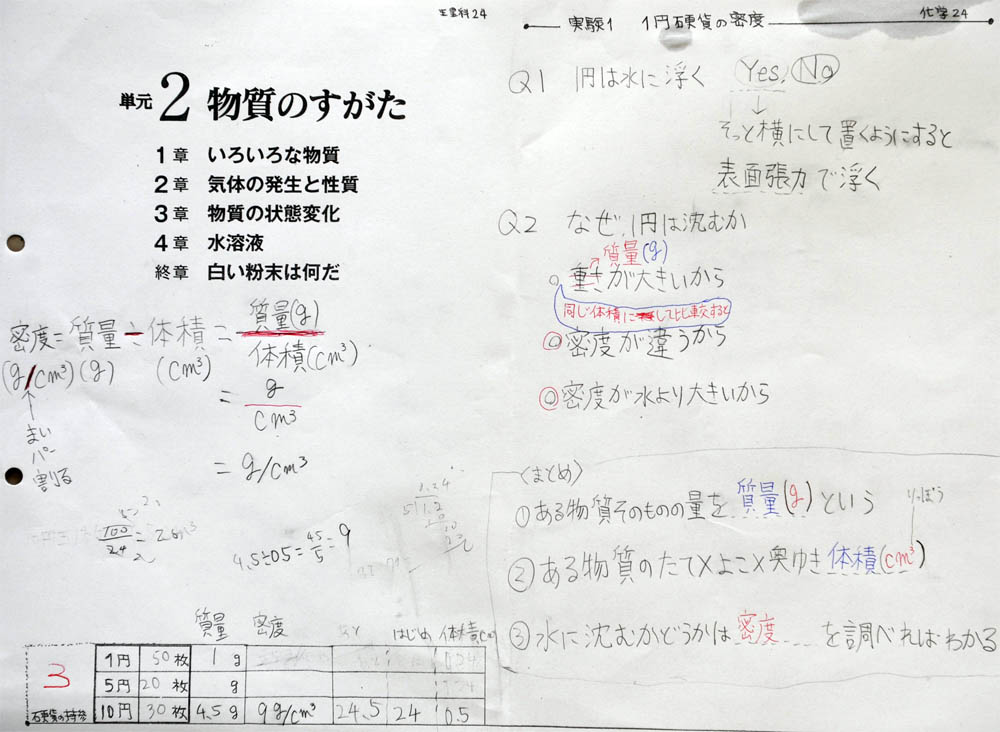 24
化学24
実験1 1円硬貨の密度
単元2 物質のすがた
1章 いろいろな物質
2章 気体の発生と性質
3章 物質の状態変化
4章 水溶液
終章 白い粉末は何だ
密度=質量÷体積=質量(g)/体積(cm³)
(g/cm³)(g) (cm³)
= g/cm³
= g/cm³
まい
パー
割る
100/24=
4.5÷05=45/5=9
質量 密度 はじめ 体積
3
硬貨の持参
1円 50枚 1g
5円 20枚 g
10円 30枚 4.5g 9g/cm³ 24.5 24 0.5
Q1 1円は水に浮く Yes, No
↓
そっと横にして置くようにすると
表面張力で浮く
Q2 なぜ、1円は沈むか
質量(g)
重さが大きいから
同じ体積にして比較すると
◎密度が違うから
◎密度が水より大きいから
〈まとめ〉
①ある物質そのものの量を質量(g)という
りっぽう
②ある物質のたて×よこ×奥ゆき体積(cm³)
③水に沈むかどうかは密度を調べればわかる